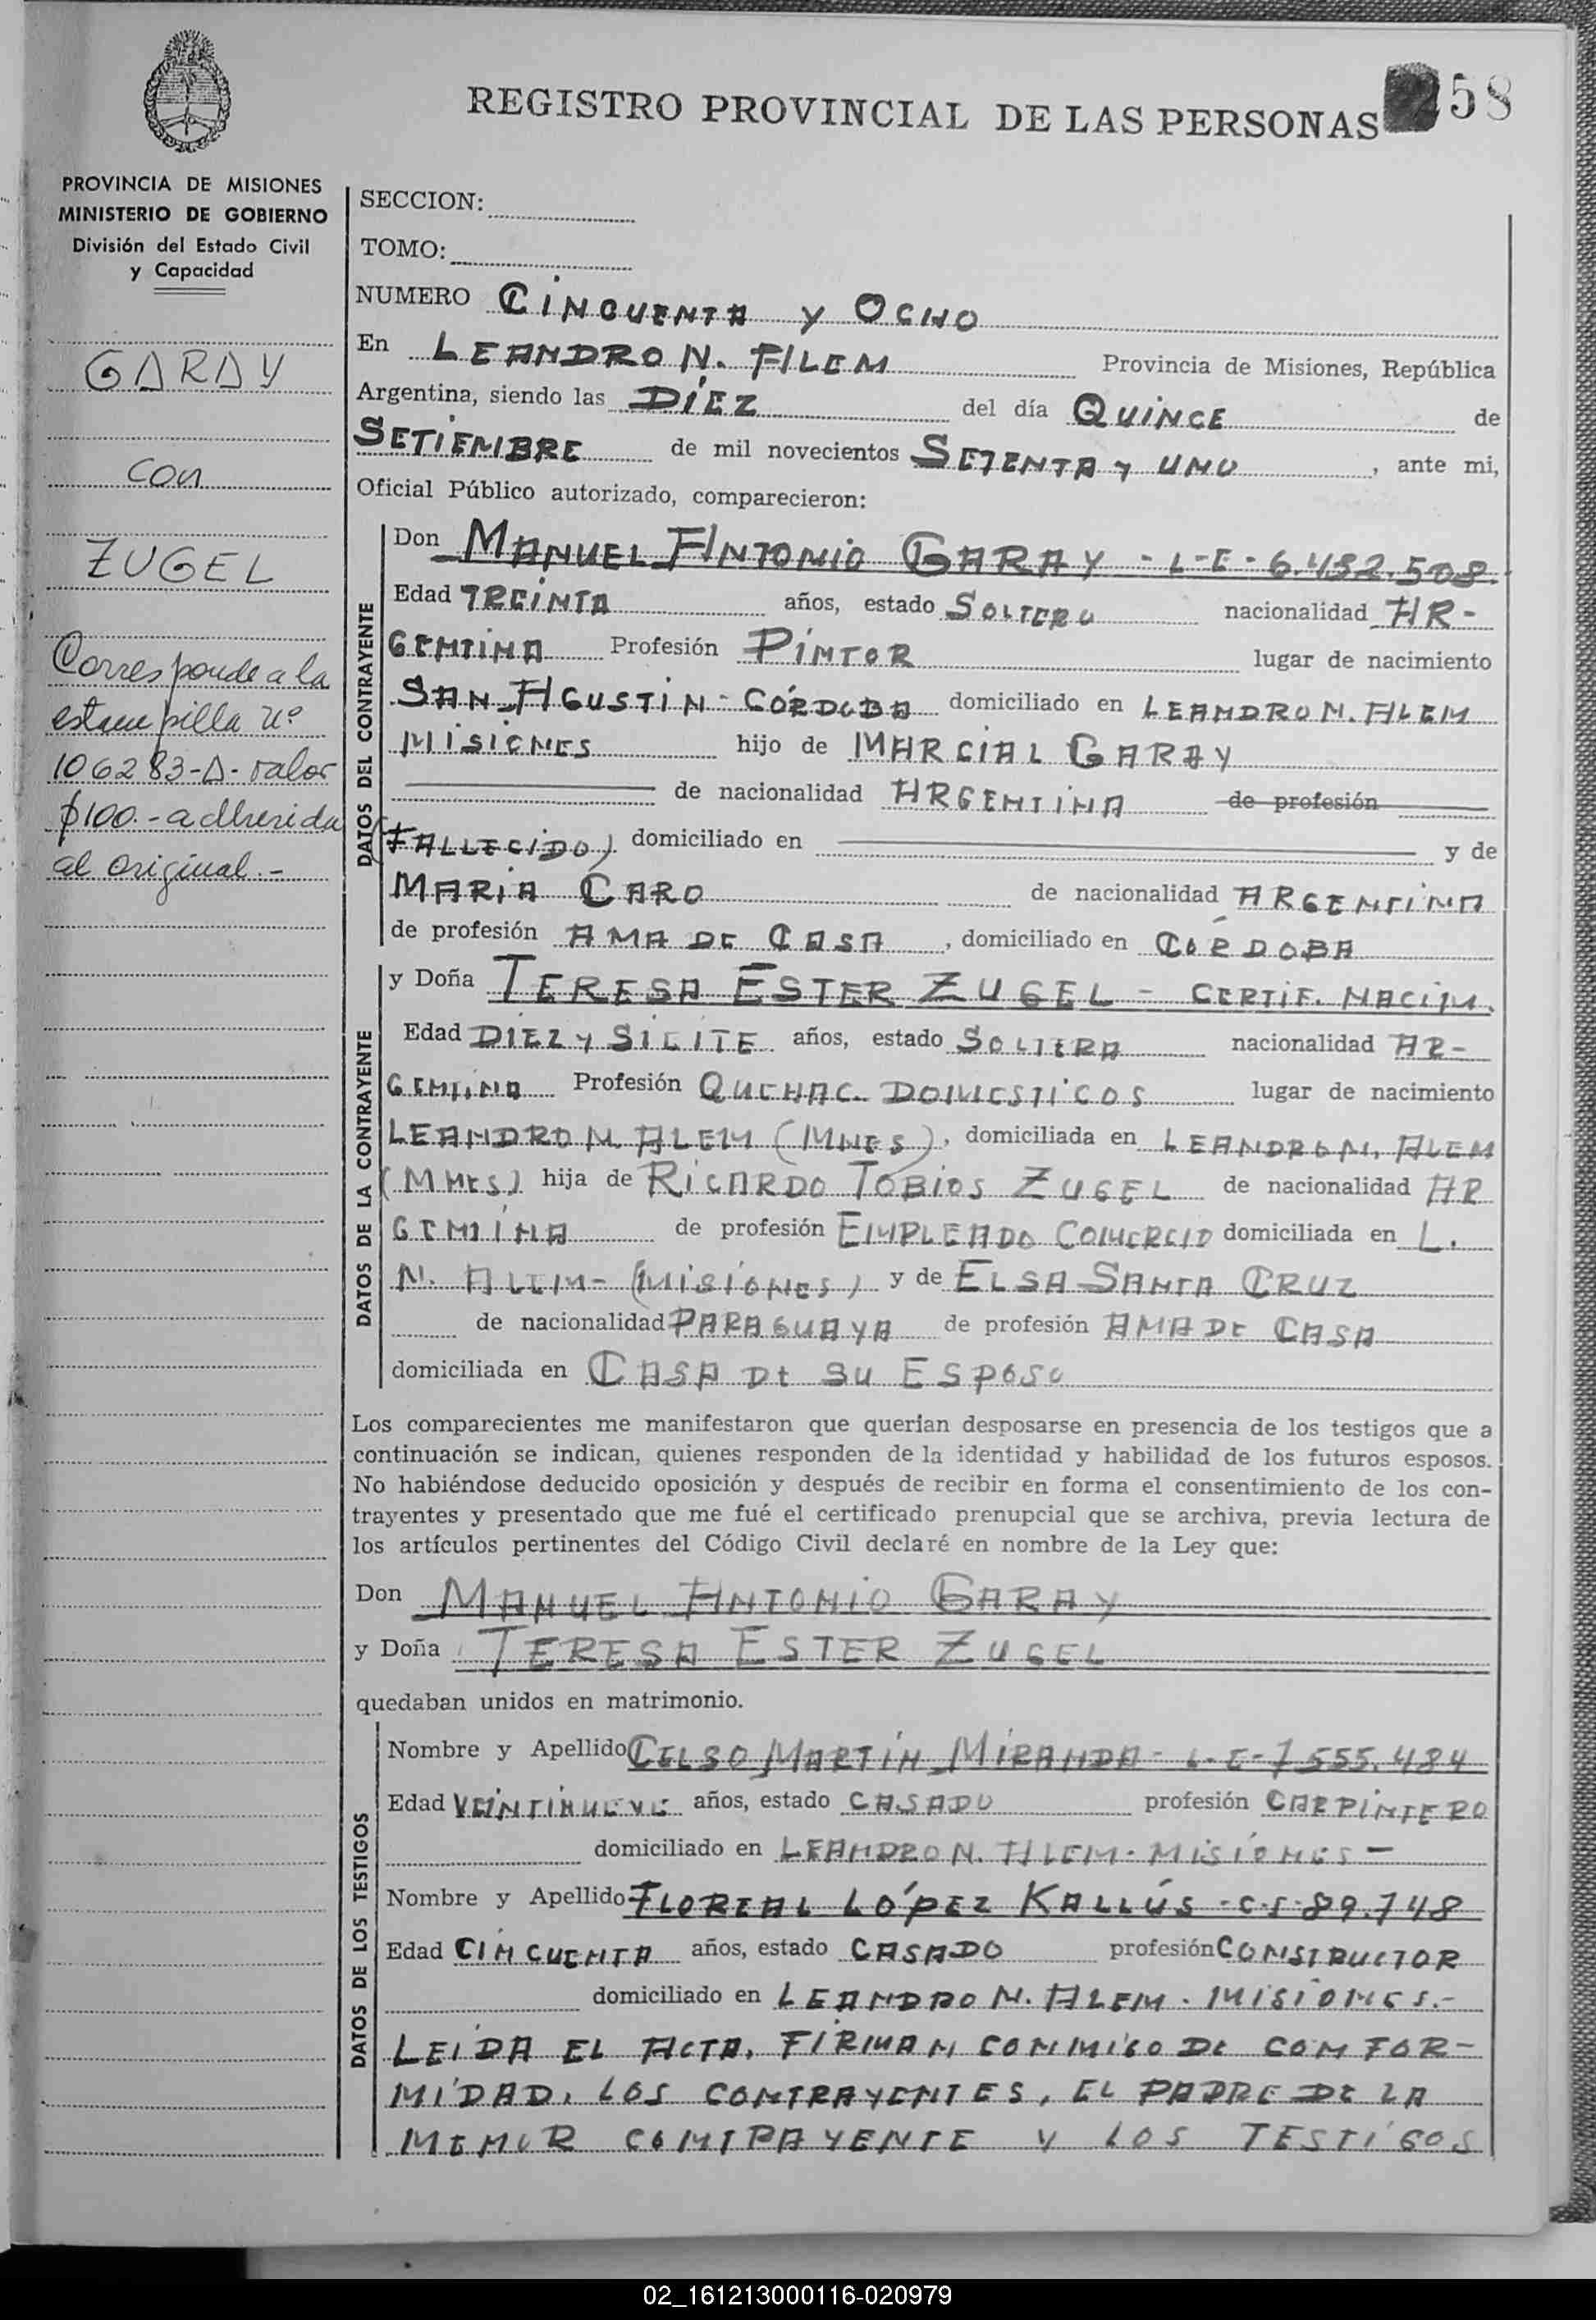 REGISTRO PROVINCIAL DE LAS PERSONAS 58
PROVINCIA DE MISIONES
MINISTERIO DE GOBIERNO
División del Estado Civil
y Capacidad
GARAY
con
ZUGEL
Corresponde a la
estampilla nº
106283-A- valor
$100.- adherida
al original.-
SECCION:
TOMO:
NUMERO CINCUENTA Y OCHO
En LEANDRO N. ALEM Provincia de Misiones, República
Argentina, siendo las DIEZ del día QUINCE de
SETIEMBRE de mil novecientos SETENTA Y UNO, ante mi,
Oficial Público autorizado, comparecieron:
DATOS DEL CONTRAYENTE
Don MANUEL ANTONIO GARAY - L-E- 6.432.508.
Edad TREINTA años, estado SOLTERO nacionalidad AR-
GENTINA Profesión PINTOR lugar de nacimiento
SAN AGUSTIN - CÓRDOBA domiciliado en LEANDRO N. ALEM
MISIONES hijo de MARCIAL GARAY
de nacionalidad ARGENTINA de profesión
(FALLECIDO) domiciliado en y de
MARIA CARO de nacionalidad ARGENTINA
de profesión AMA DE CASA, domiciliado en CÓRDOBA
DATOS DE LA CONTRAYENTE
y Doña TERESA ESTER ZUGEL - CERTIF. NACIM.
Edad DIEZ Y SIEITE años, estado SOLTERA nacionalidad AR-
GENTINA Profesión QUEHAC. DOMESTICOS lugar de nacimiento
LEANDRO N. ALEM (MNES), domiciliada en LEANDRO N. ALEM
(MNES) hija de RICARDO TOBIOS ZUGEL de nacionalidad AR
GENTINA de profesión EMPLEADO COMERCIO domiciliada en L.
N. ALEM- (MISIONES) y de ELSA SANTA CRUZ
de nacionalidad PARAGUAYA de profesión AMA DE CASA
domiciliada en CASA DE SU ESPOSO
Los comparecientes me manifestaron que querían desposarse en presencia de los testigos que a
continuación se indican, quienes responden de la identidad y habilidad de los futuros esposos.
No habiéndose deducido oposición y después de recibir en forma el consentimiento de los con-
trayentes y presentado que me fué el certificado prenupcial que se archiva, previa lectura de
los artículos pertinentes del Código Civil declaré en nombre de la Ley que:
Don MANUEL ANTONIO GARAY
y Doña TERESA ESTER ZUGEL
quedaban unidos en matrimonio.
DATOS DE LOS TESTIGOS
Nombre y Apellido CELSO MARTIN MIRANDA - L-E- 7555.484
Edad VEINTINUEVE años, estado CASADO profesión CARPINTERO
domiciliado en LEANDRO N. ALEM - MISIONES -
Nombre y Apellido FLOREAL LÓPEZ KALLÚS - C-I- 89.748
Edad CINCUENTA años, estado CASADO profesión CONSTRUCTOR
domiciliado en LEANDRO N. ALEM - MISIONES.-
LEIDA EL ACTA, FIRMAN CONMIGO DE CONFOR-
MIDAD, LOS CONTRAYENTES, EL PADRE DE LA
MENOR CONTRAYENTE Y LOS TESTIGOS
02_161213000116-020979